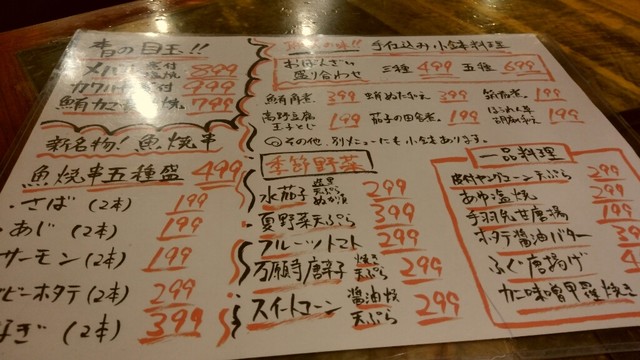 春の目玉!!
メバル 煮付 塩焼 899
カワハギ煮付 999
鮪カマ 焼 799
新名物!魚焼串
魚焼串五種盛 499
・さば(2本) 199
・あじ(2本) 199
サーモン(2本) 199
ビーホタテ(2本) 299
なぎ(2本) 399
手仕込み小鉢料理
おばんざい 盛り合わせ 三種 499 五種 699
鮪角煮 399
ぬた和え 399
筑前煮 199
高野豆腐 玉子とじ 199
茄子の田舎煮 199
ほうれん草 胡麻和え 199
その他、別メニューにも小鉢あります。
季節野菜
水茄子 天ぷら ぬか漬 299
夏野菜天ぷら 399
フルーツトマト 299
万願寺唐辛子 焼き 天ぷら 299
スイートコーン 醤油焼 天ぷら 299
一品料理
皮付ヤングコーン天ぷら 299
あゆ塩焼 299
手羽先甘唐揚 199
ホタテ醤油バター 399
ふぐ唐揚げ
カニ味噌甲羅焼き